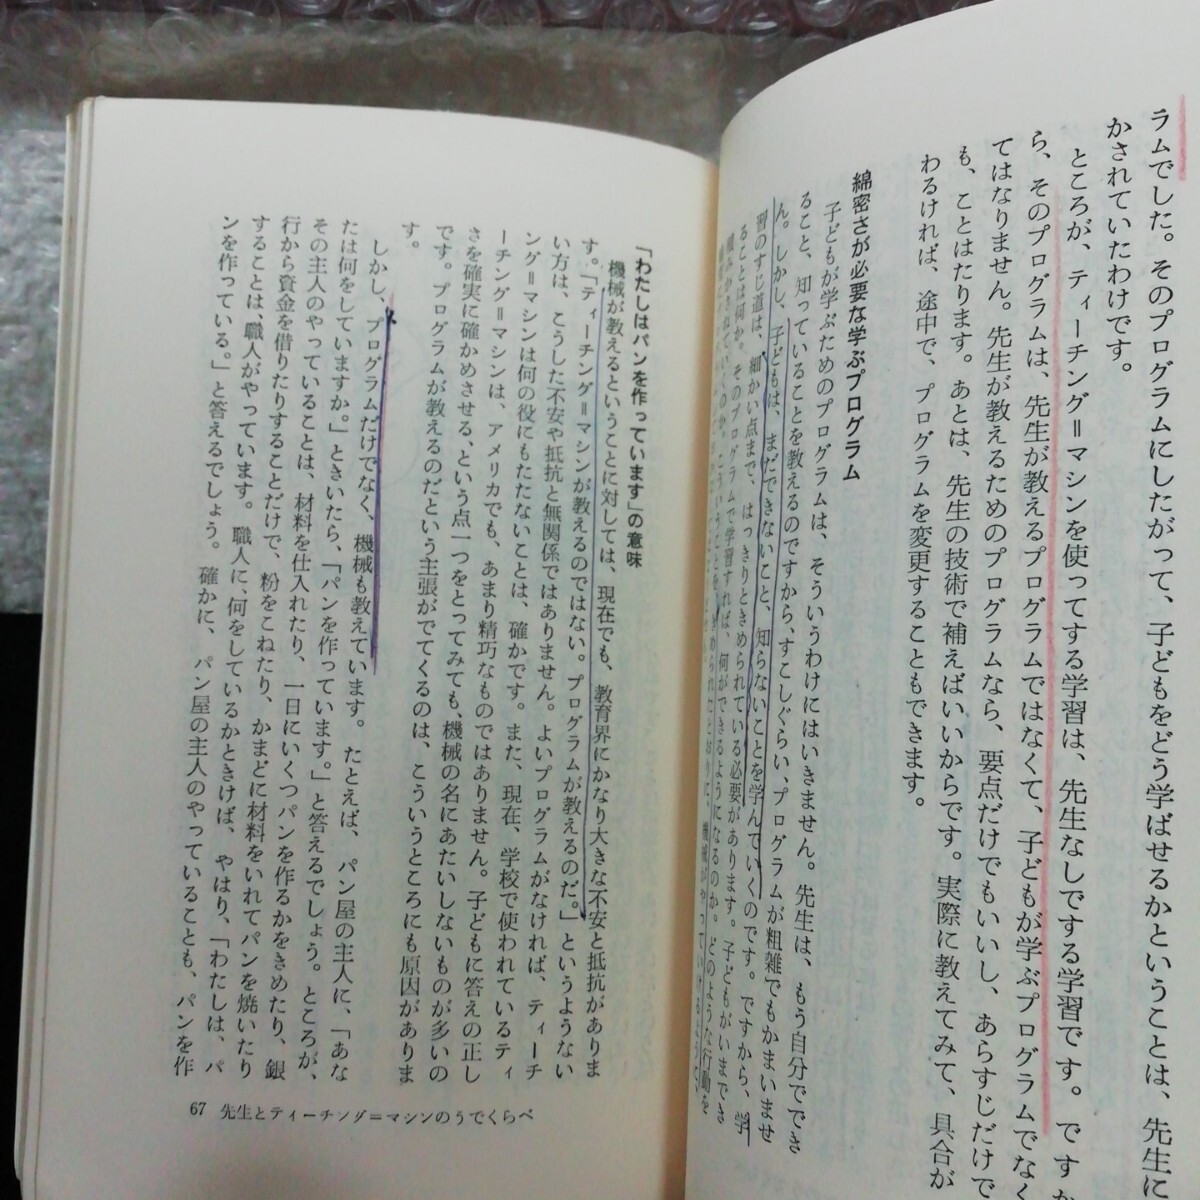 ラムでした。そのプログラムにしたがって、子どもをどう学ばせるかということは、先生に
かされていたわけです。
ところが、ティーチング＝マシンを使ってする学習は、先生なしでする学習です。ですか
ら、そのプログラムは、先生が教えるプログラムではなくて、子どもが学ぶプログラムでなく
てはなりません。先生が教えるためのプログラムなら、要点だけでもいいし、あらすじだけで
も、ことはたります。あとは、先生の技術で補えばいいからです。実際に教えてみて、具合が
わるければ、途中で、プログラムを変更することもできます。
綿密さが必要な学ぶプログラム
子どもが学ぶためのプログラムは、そういうわけにはいきません。先生は、もう自分ででき
ること、知っていることを教えるのですから、すこしぐらい、プログラムが粗雑でもかまいませ
ん。しかし、子どもは、まだできないこと、知らないことを学んでいくのです。ですから、学
習のすじ道は、細かい点まで、はっきりときめられている必要があります。子どもがいまでき
ることは何か。そのプログラムで学習すれば、何ができるようになるのか。どのような行動を
積みかさねていくのか。こういうことを、きめられたとおりに、機械がやっていけるように、
「わたしはパンを作っています」の意味
機械が教えるということに対しては、現在でも、教育界にかなり大きな不安と抵抗がありま
す。「ティーチング＝マシンが教えるのではない。プログラムが教えるのだ。」というような
い方は、こうした不安や抵抗と無関係ではありません。よいプログラムがなければ、ティーチ
ング＝マシンは何の役にもたたないことは、確かです。また、現在、学校で使われているティ
ーチング＝マシンは、アメリカでも、あまり精巧なものではありません。子どもに答えの正し
さを確実に確かめさせる、という点一つをとってみても、機械の名にあたいしないものが多いの
です。プログラムが教えるのだという主張がでてくるのは、こういうところにも原因がありま
す。
しかし、プログラムだけでなく、機械も教えています。たとえば、パン屋の主人に、「あな
たは何をしていますか。」ときいたら、「パンを作っています。」と答えるでしょう。ところが、
その主人のやっていることは、材料を仕入れたり、一日にいくつパンを作るかをきめたり、銀
行から資金を借りたりすることだけで、粉をこねたり、かまどに材料をいれてパンを焼いたり
することは、職人がやっています。職人に、何をしているかときけば、やはり、「わたしは、パ
ンを作っている。」と答えるでしょう。確かに、パン屋の主人のやっていることも、パンを作
67 先生とティーチング＝マシンのうでくらべ